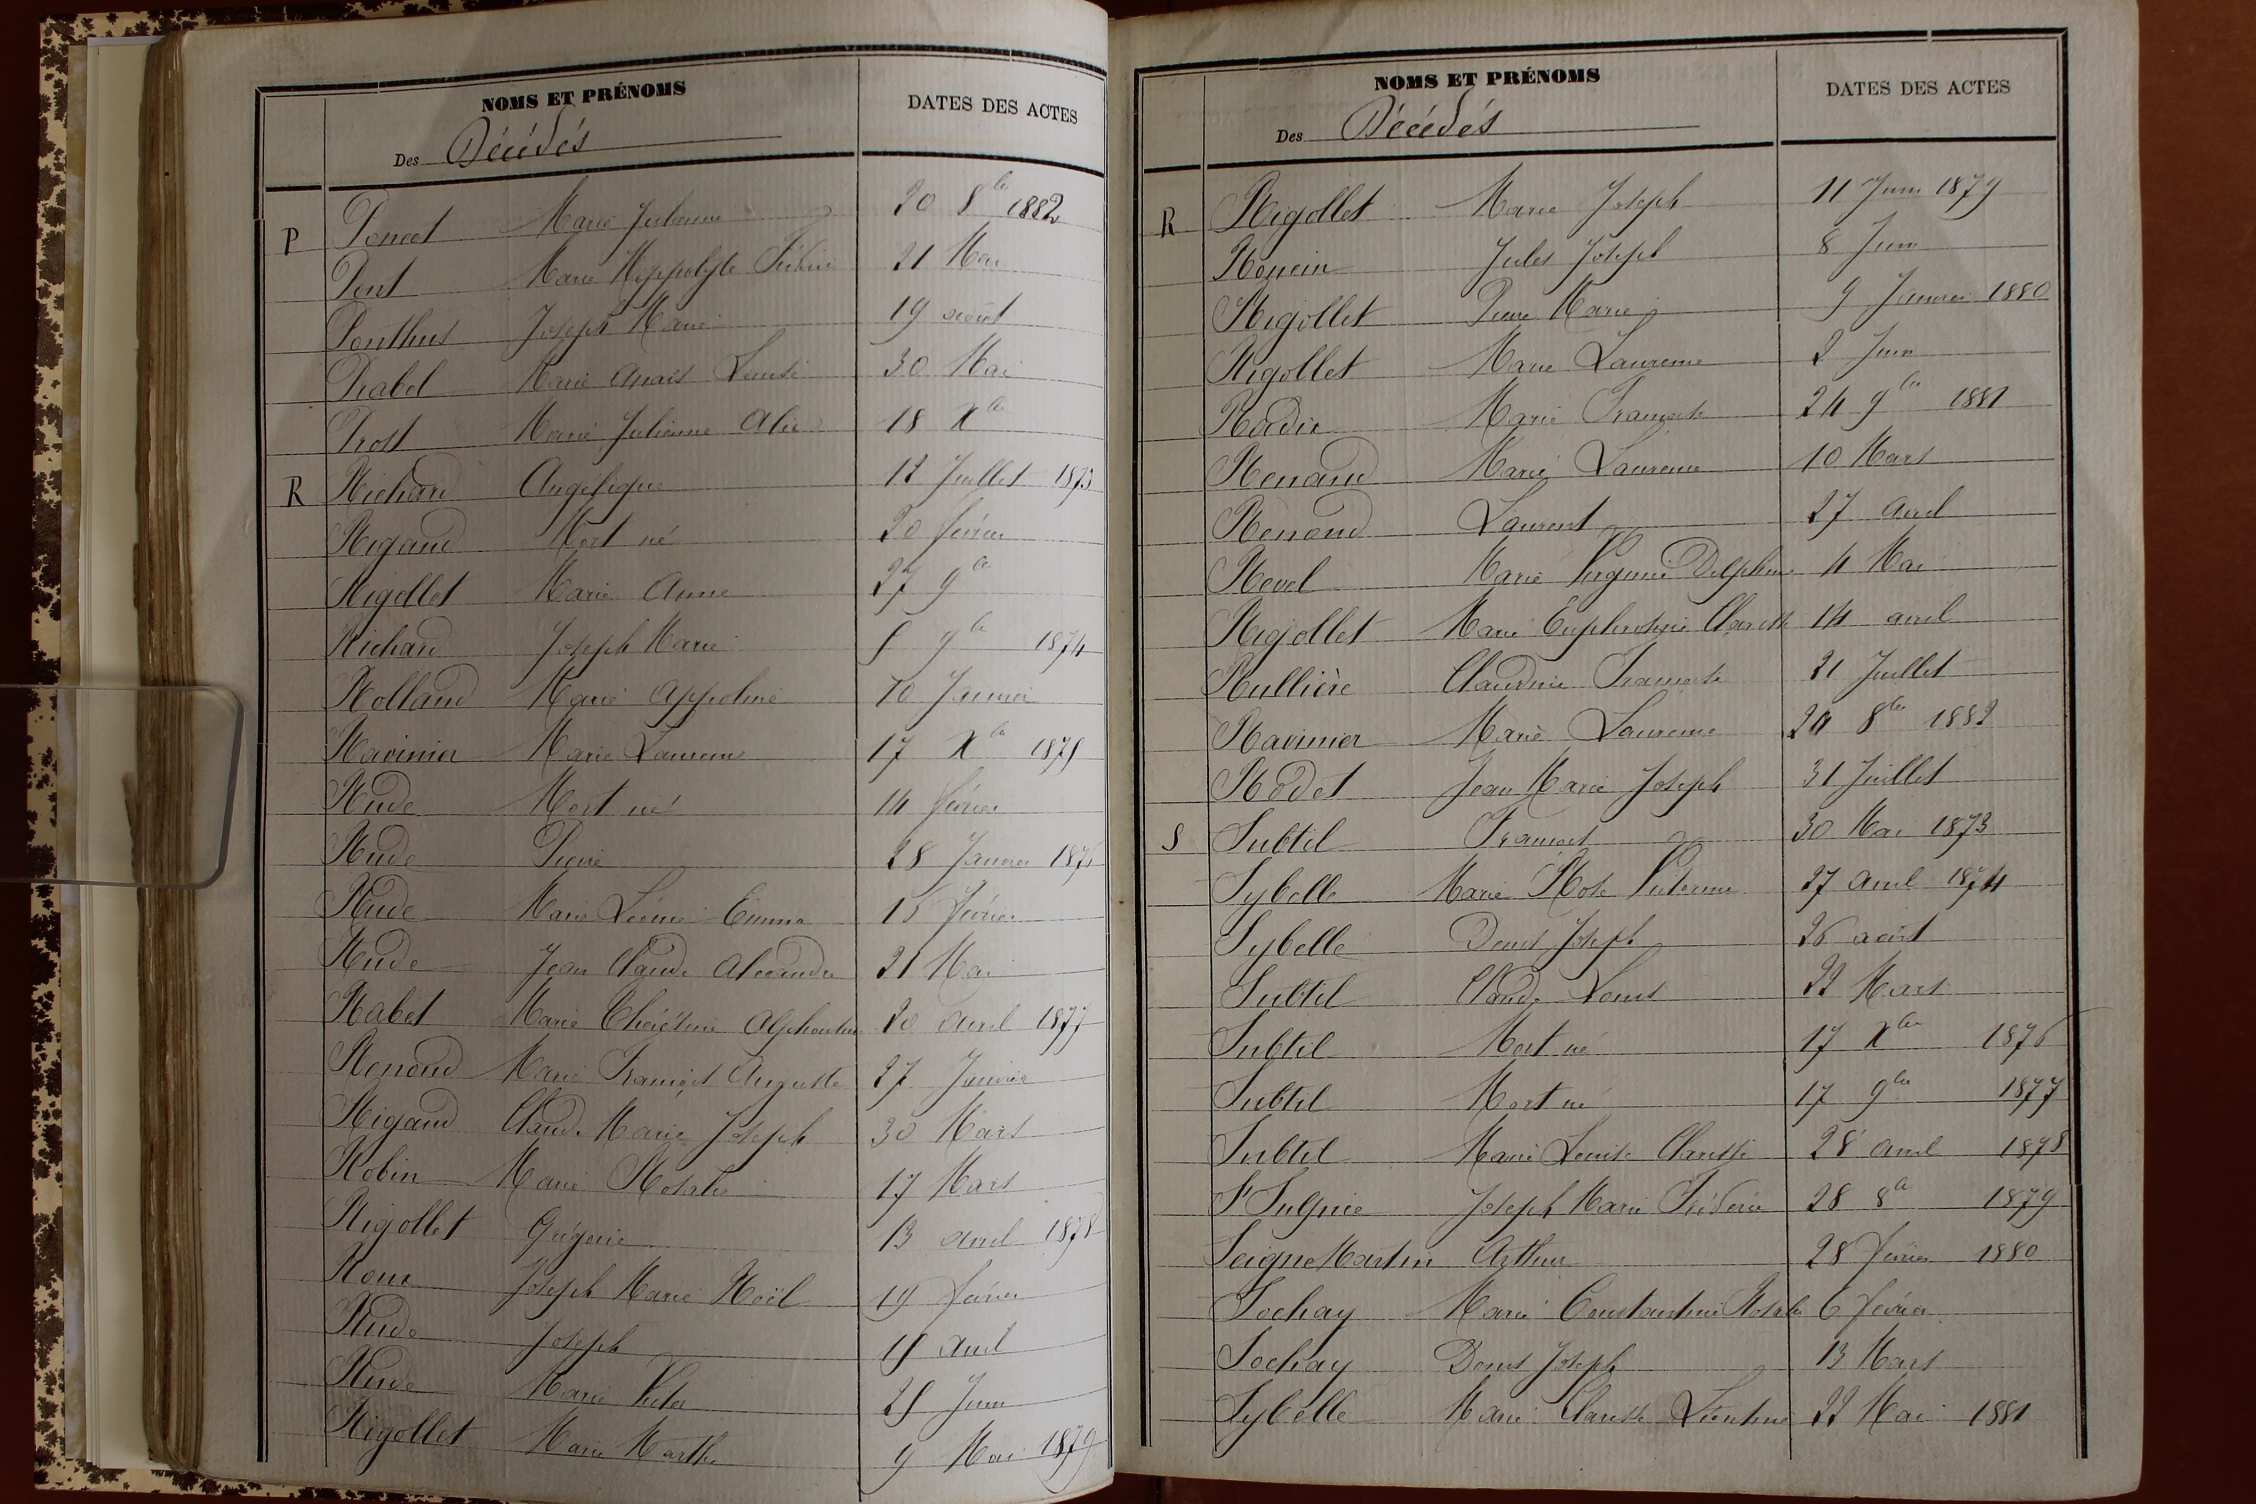 NOMS ET PRÉNOMS
DATES DES ACTES
Des Décédés
P Poncet Marie Julienne 20 8bre 1882
Pont Marie Hyppolyte Frédéric 21 Mai
Ponthus Joseph Marie 19 août
Prabel Marie Anaïs Louise 30 Mai
Prost Marie Julienne Alix 18 Xbre
R Richard Angélique 12 Juillet 1873
Rigaud Mort né 20 février
Rigollet Marie Anne 27 9bre
Richard Joseph Marie 5 9bre 1874
Rolland Marie Appoline 10 Janvier
Ravinier Marie Laurence 17 Xbre 1875
Rude Mort né 14 février
Rude Pierre 28 Janvier 1876
Rude Marie Léonie Emma 15 février
Rude Jean Claude Alexandre 21 Mai
Rabet Marie Alphonsine 20 avril 1877
Renoud Marie François Auguste 27 Janvier
Rigaud Claude Marie Joseph 30 Mars
Robin Marie Rosalie 17 Mars
Rigollet Grégoire 13 avril 1878
Roux Joseph Marie Noël 19 février
Rude Joseph 15 avril
Rude Marie Victor 25 Juin
Rigollet Marie Marthe 9 Mai 1879
NOMS ET PRÉNOMS
DATES DES ACTES
Des Décédés
R Rigollet Marie Joseph 11 Juin 1879
Jules Joseph 8 Juin
Rigollet Pierre Marie 9 Janvier 1880
Rigollet Marie Laurence 2 Juin
Rodix Marie Françoise 24 9bre 1881
Renaud Marie Laurence 10 Mars
Renoud Laurent 27 avril
Revel Marie Virginie Delphine 4 Mai
Rigollet Marie Euphrosine Clarisse 14 avril
Rullière Claudine Françoise 21 Juillet
Ravinier Marie Laurence 20 8bre 1882
Rodet Jean Marie Joseph 31 Juillet
S Subtil François 30 Mai 1873
Sybelle Marie Rose Victorine 27 avril 1874
Sybelle Denis Joseph 26 août
Subtil Claude Louis 22 Mars
Subtil Mort né 17 Xbre 1876
Subtil Mort né 17 9bre 1877
Subtil Marie Louise Clarisse 28 avril 1878
St Sulpice Joseph Marie Frédéric 28 8bre 1879
SeigneMartin Arthur 28 février 1880
Sochay Marie Constantine Rosalie 6 février
Sochay Denis Joseph 13 Mars
Sybelle Marie Clarisse Léontine 22 Mai 1881